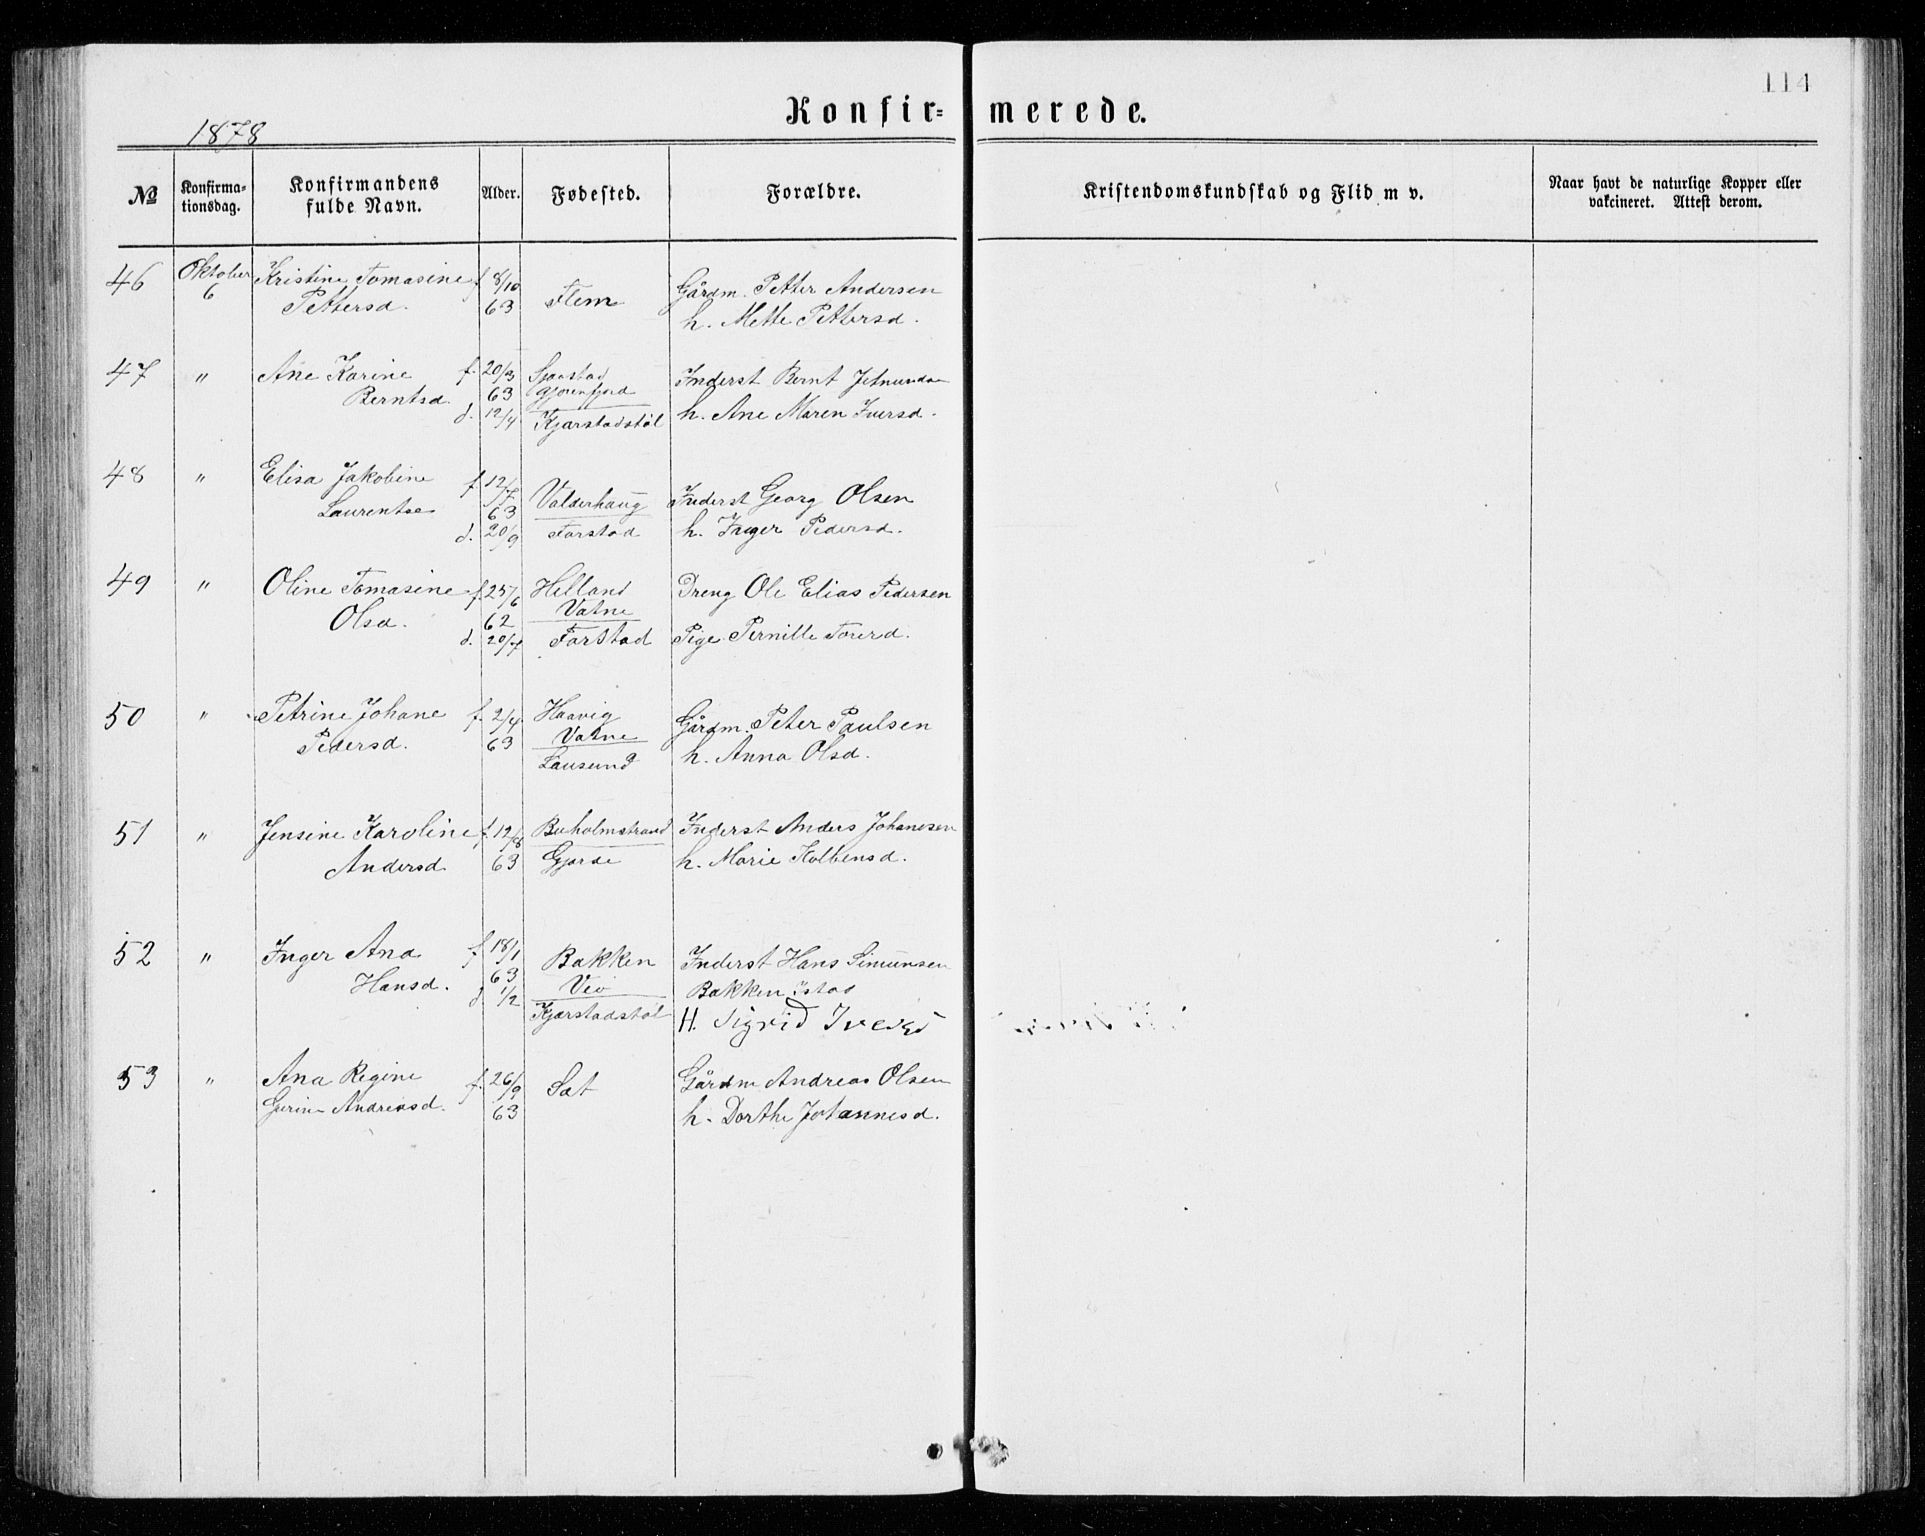 114
Konfirmerede.
1878
№
Konfirmationsdag.
Konfirmandens fulde Navn.
Alder.
Fødested.
Forældre.
Kristendomskundskab og Flid m v.
Naar havt de naturlige Kopper eller vakcineret. Attest derom.
46 Oktober 6 Kristine Tomasine f. 8/10 63 Flem Gårdm. Petter Andersen
Pettersd. h. Mette Pettersd.
47 " Ane Karine f. 20/3 63 Sjaastad
Berntsd. d. 12/4 Kjærstadstøl Inderst Bernt
h. Ane Maren Iversd.
48 " Elisa Jakobine f. 12/7 63 Valderhaug Inderst Georg Olsen
Laurentse d. 20/9 Farstad h. Inger Pedersd.
49 " Oline Tomasine f. 25/6 62 Helland Vatne Dreng Ole Elias Pedersen
Olsd. d. 20/7 Farstad Pige Pernille
50 " Petrine Johane f. 2/4 63 Haavig Vatne Gårdm. Peter Paulsen
Pedersd. Lausund h. Anna Olsd.
51 " Jensine Karoline f. 12/8 63 Buholmstrand Inderst Anders Johanesen
Andersd. Gjærde h. Marie Kolbensd.
52 " Inger Ana f. 18/1 63 Bakken Veø Inderst Hans Simunsen
Hansd. d. 1/2 Kjærstadstøl Bakken Istad
H. Sigrid Iversd
53 " Ana Regine f. 26/9 63 Sæt Gårdm Andreas Olsen
Gurine Andreasd. h. Dorthe Johannesd.